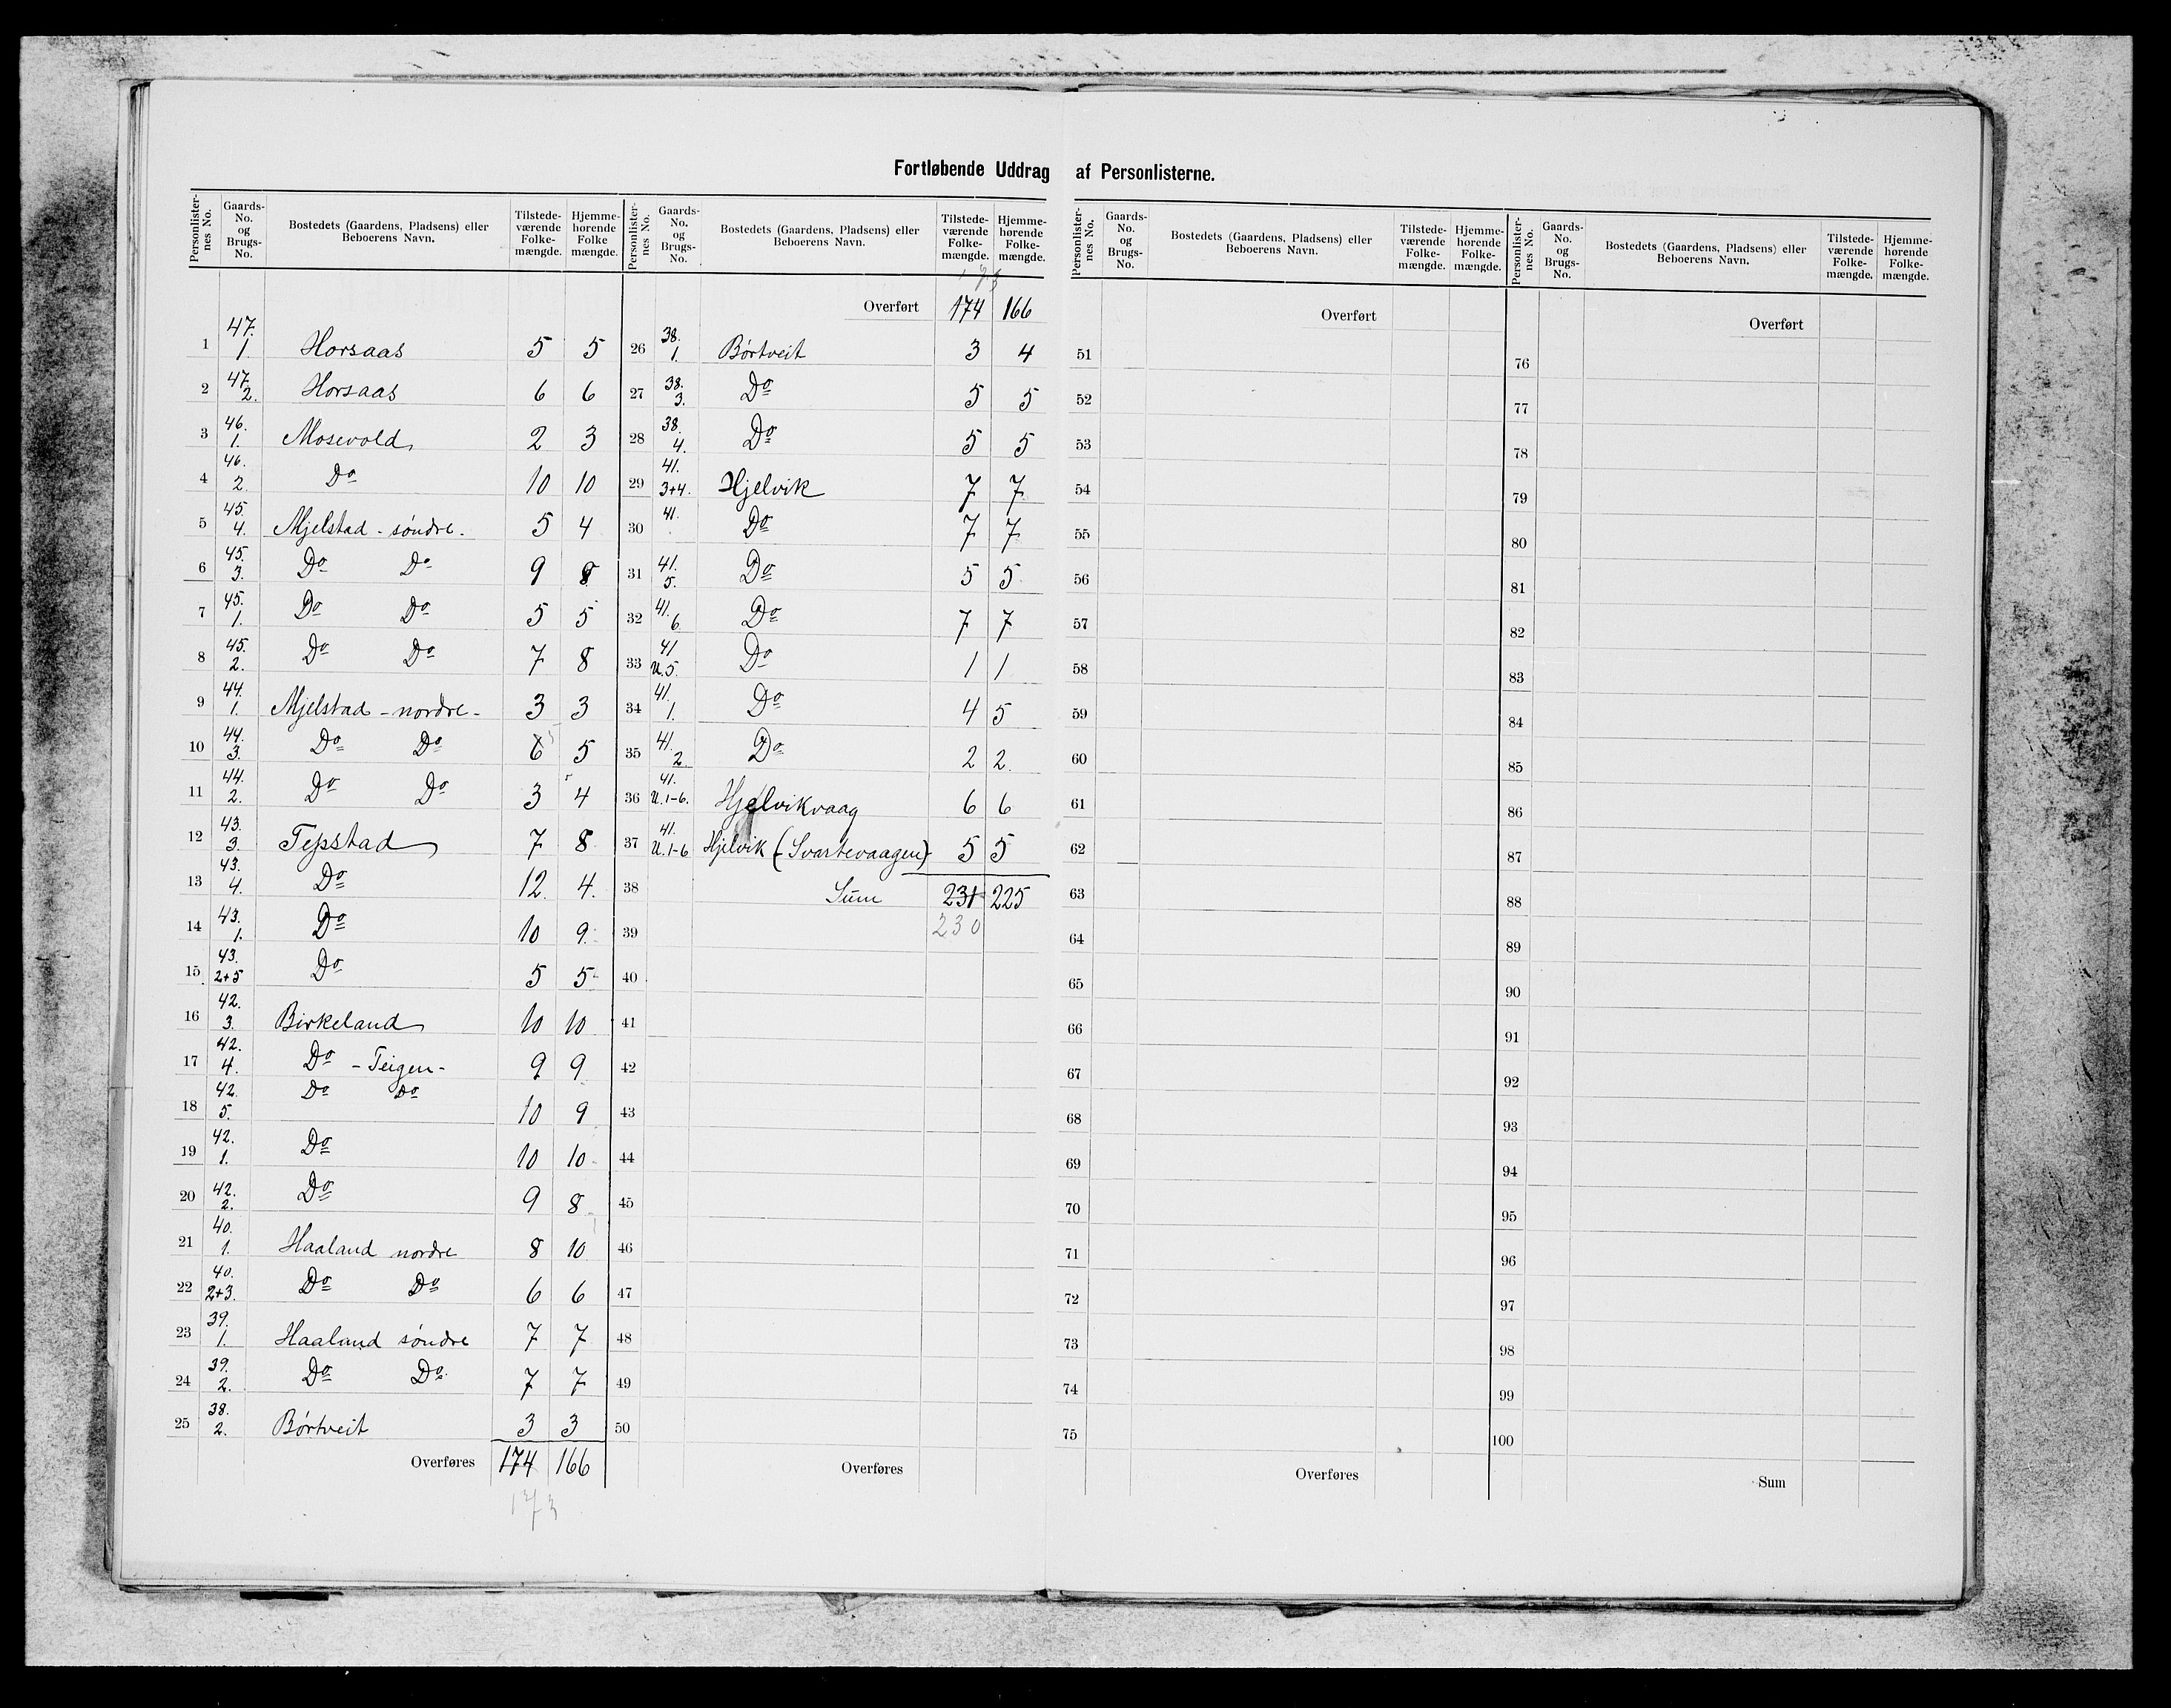 Fortløbende Uddrag af Personlisterne.
Personlisternes No. | Gaards-No. og Brugs-No. | Bostedets (Gaardens, Pladsens) eller Beboerens Navn. | Tilstedeværende Folkemængde. | Hjemmehørende Folkemængde.
1 | 47. 1. | Horsaas | 5 | 5
2 | 47. 2. | Horsaas | 6 | 6
3 | 46. 1. | Mosevold | 2 | 3
4 | 46. 2. | Do | 10 | 10
5 | 45. 4. | Mjelstad - søndre. | 5 | 4
6 | 45. 3. | Do Do | 9 | 8
7 | 45. 1. | Do Do | 5 | 5
8 | 45. 2. | Do Do | 7 | 8
9 | 44. 1. | Mjelstad - nordre - | 3 | 3
10 | 44. 3. | Do Do | 6 5 | 5
11 | 44. 2. | Do Do | 3 | 4
12 | 43. 3. | Tepstad | 7 | 8
13 | 43. 4. | Do | 12. | 4.
14 | 43. 1. | Do | 10 | 9.
15 | 43. 2+5 | Do | 5 | 5
16 | 42. 3. | Birkeland | 10 | 10
17 | 42. 4. | Do - Teigen - | 9 | 9
18 | 42. 5. | Do Do | 10 | 9
19 | 42. 1. | Do | 10 | 10
20 | 42. 2. | Do | 9 | 8
21 | 40. 1. | Haaland nordre | 8 | 10
22 | 40. 2+3. | Do Do | 6 | 6
23 | 39. 1. | Haaland søndre | 7 | 7
24 | 39. 2. | Do Do | 7 | 7
25 | 38. 2. | Børtveit | 3 | 3
Overføres | 174 | 166
173
Personlisternes No. | Gaards-No. og Brugs-No. | Bostedets (Gaardens, Pladsens) eller Beboerens Navn. | Tilstedeværende Folkemængde. | Hjemmehørende Folkemængde.
173
Overført | 174 | 166
26 | 38. 1. | Børtveit | 3 | 4
27 | 38. 3. | Do | 5 | 5
28 | 38. 4. | Do | 5 | 5
29 | 41. 3+4. | Hjelvik | 7 | 7
30 | 41. | Do | 7 | 7
31 | 41. 5. | Do | 5 | 5
32 | 41. 6. | Do | 7 | 7
33 | 41 U.5. | Do | 1 | 1
34 | 41. 1. | Do | 4 | 5
35 | 41. 2 | Do | 2 | 2.
36 | 41. U.1-6. | Hjelvikvaag | 6 | 6
37 | 41. U.1-6 | Hjelvik (Svartevaagen) | 5 | 5
38 | Sum | 231 | 225
39 | 230
40
41
42
43
44
45
46
47
48
49
50
Overføres
Personlisternes No. | Gaards-No. og Brugs-No. | Bostedets (Gaardens, Pladsens) eller Beboerens Navn. | Tilstedeværende Folkemængde. | Hjemmehørende Folkemængde.
Overført
51
52
53
54
55
56
57
58
59
60
61
62
63
64
65
66
67
68
69
70
71
72
73
74
75
Overføres
Personlisternes No. | Gaards-No. og Brugs-No. | Bostedets (Gaardens, Pladsens) eller Beboerens Navn. | Tilstedeværende Folkemængde. | Hjemmehørende Folkemængde.
Overført
76
77
78
79
80
81
82
83
84
85
86
87
88
89
90
91
92
93
94
95
96
97
98
99
100
Sum